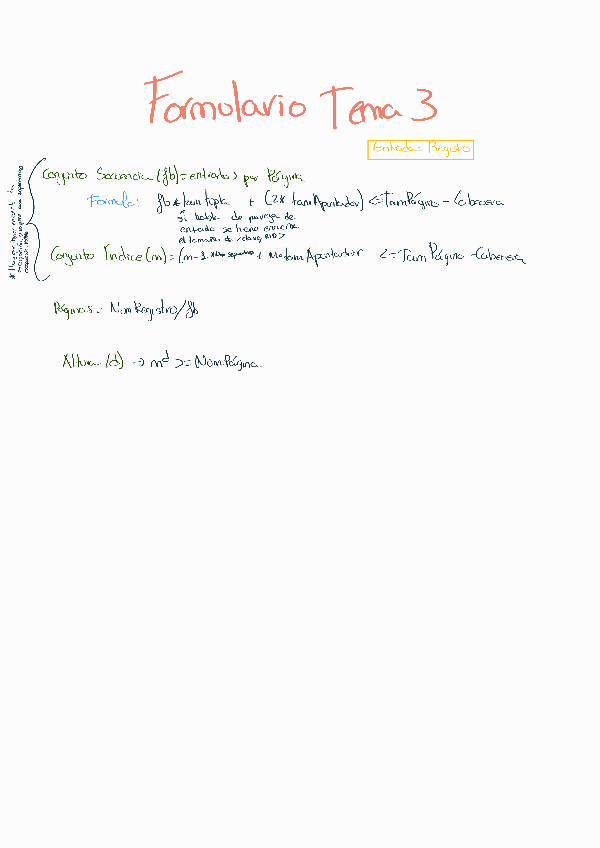 Formulario Tema 3
Entrada = Registro
Conjunto Secuencia (fb) = entradas por Página
Formula: fb * tamTupla + (2 * tamApuntador) <= TamPágina - Cabecera
Si habla de pareja de
entrada se hace
el tamaño de <clave, RID>
Conjunto Índice (m) = (m-1 + m * tamApuntador <= TamPágina - Cabecera
Páginas: NumRegistro/fb
Altura (d) -> m^d >= NumPágina